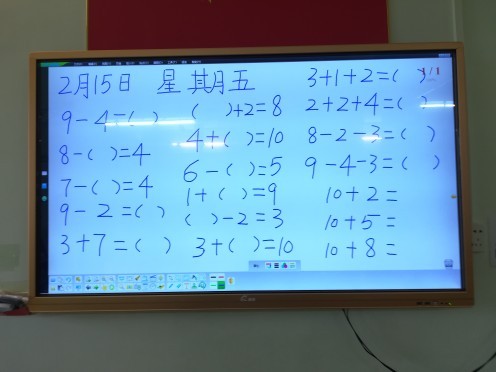 2月15日 星期五
9-4=( )
8-( )=4
7-( )=4
9-2=( )
3+7=( )
( )+2=8
4+( )=10
6-( )=5
1+( )=9
( )-2=3
3+( )=10
3+1+2=( )
2+2+4=( )
8-2-3=( )
9-4-3=( )
10+2=
10+5=
10+8=